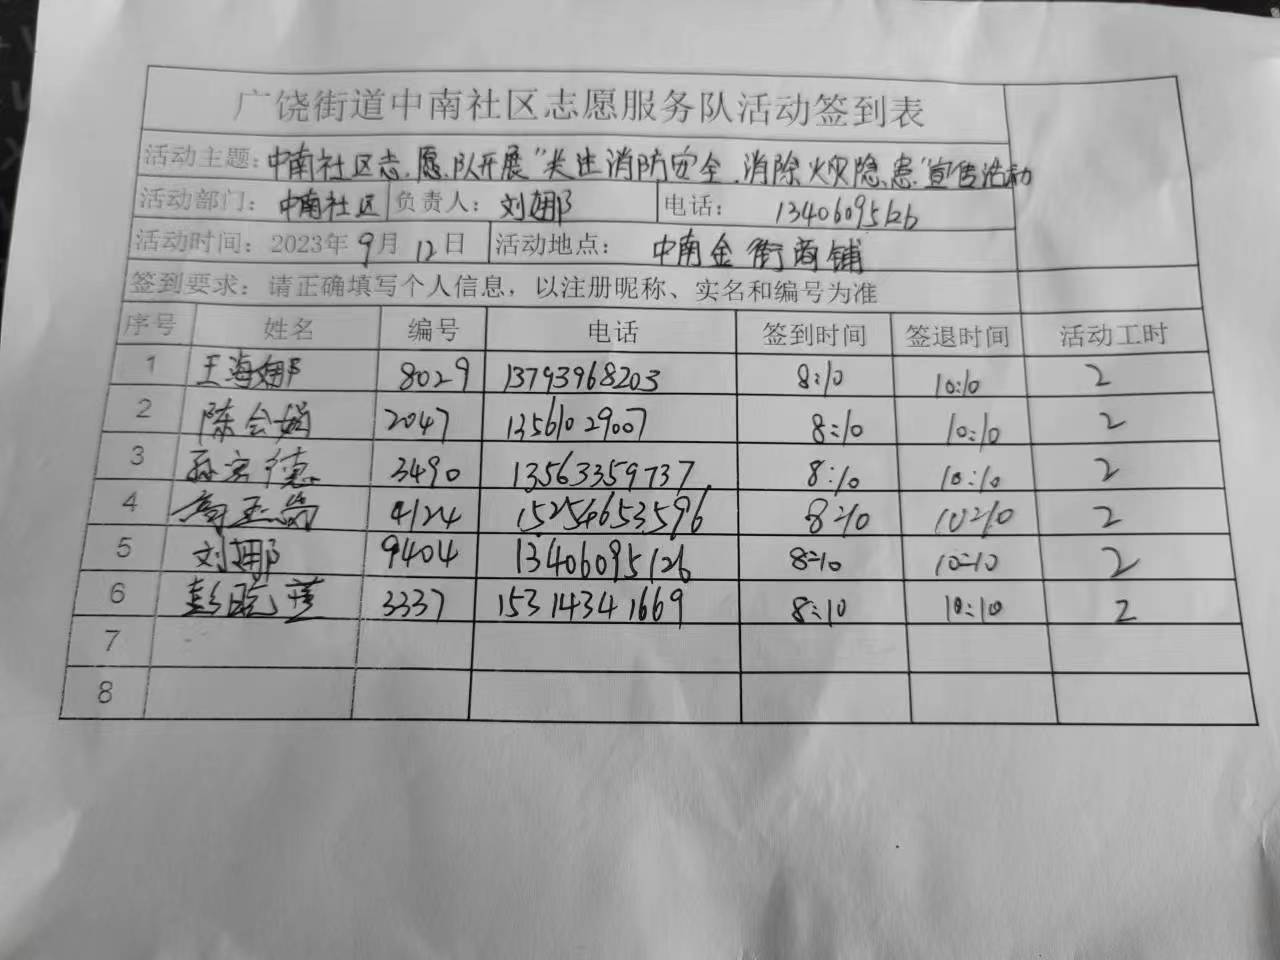 广饶街道中南社区志愿服务队活动签到表
活动主题：中南社区志愿队开展"关注消防安全.消除火灾隐患"宣传活动
活动部门：中南社区 负责人：刘娜 电话：13406095126
活动时间：2023年9月12日 活动地点：中南金街商铺
签到要求：请正确填写个人信息，以注册昵称、实名和编号为准
序号 姓名 编号 电话 签到时间 签退时间 活动工时
1 王海娜 8029 13793968203 8:10 10:10 2
2 陈会娟 2047 13561029007 8:10 10:10 2
3 孙 德 3490 13563359737 8:10 10:10 2
4 4124 15254653596 8:10 10:10 2
5 刘娜 9404 13406095126 8:10 10:10 2
6 彭晓 3337 15314341669 8:10 10:10 2
7
8